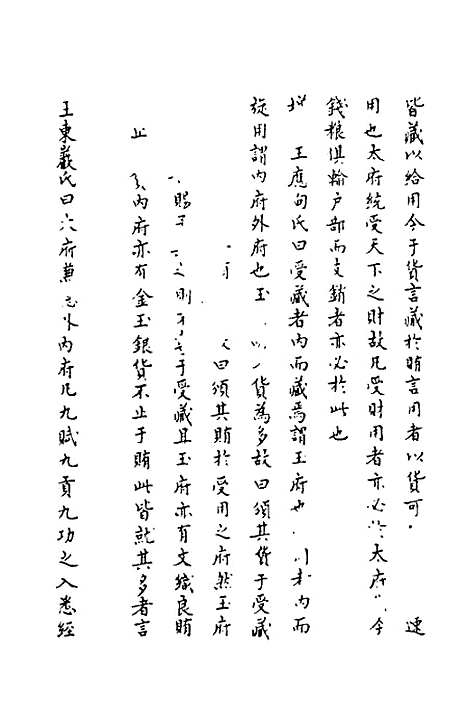 皆藏以給用今于貨言藏於賄言用者以貨可 速
用也太府統受天下之財故凡受財用者亦必於太府 今
錢粮俱輸户部而支銷者亦必於此也
王應甸氏曰受藏者内而藏焉謂玉府也 内而
旋用謂内府外府也玉 以 貨為多故曰頒其貨于受藏
曰頒其賄於受用之府然玉府
賜 之 則 于受藏且玉府亦有文織良賄
止 内府亦有金玉銀貨不止于賄此皆就其多者言
王東巖氏曰 府兼 外内府凡九賦九貢九功之入悉經